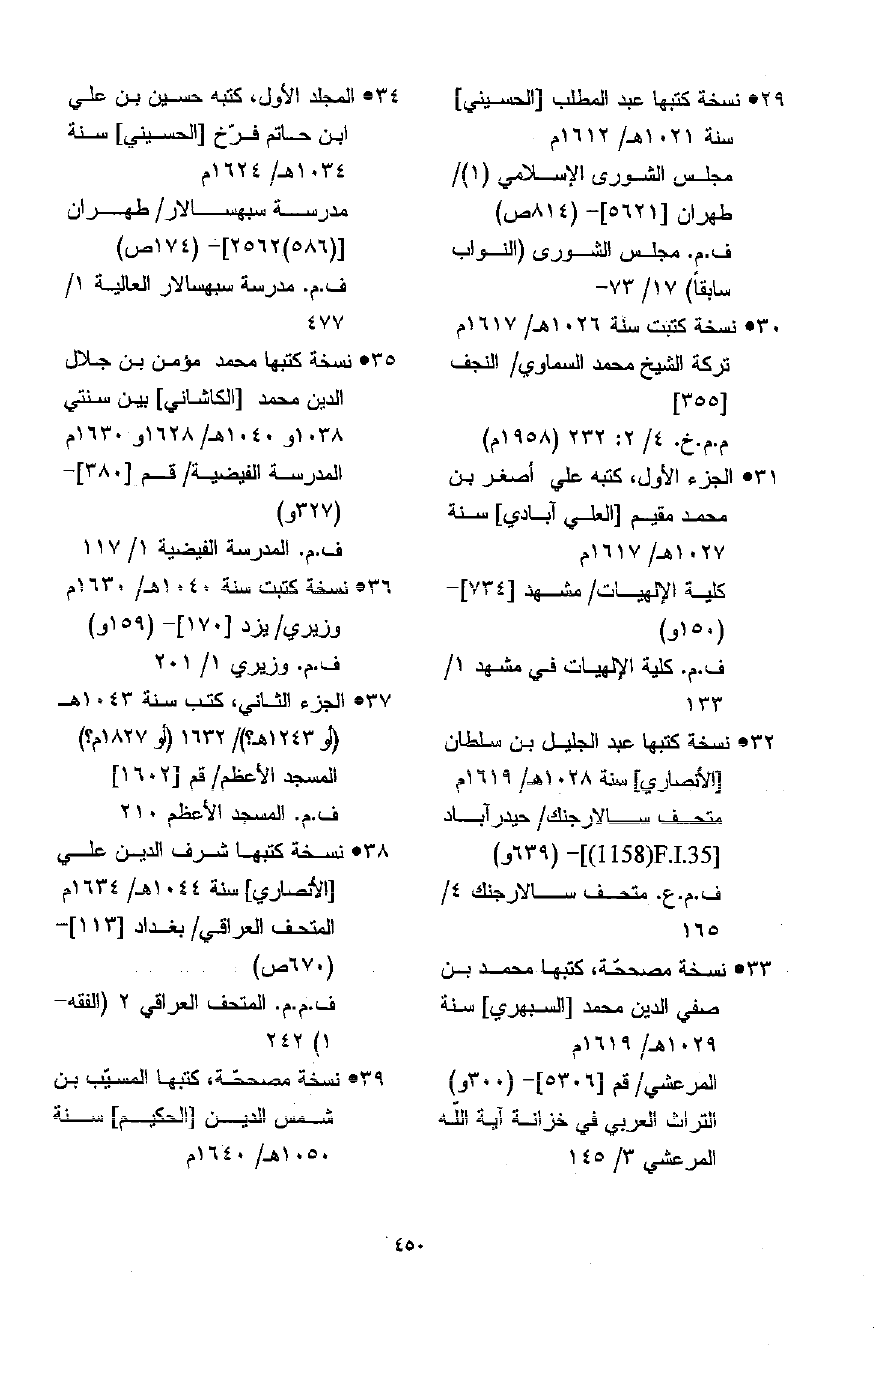 ٢٩• نسخة كتبها عبد المطلب [الحسيني]
سنة ١٠٢١هـ/ ١٦١٢م
مجلس الشورى الإسلامي (١)/
طهران [٥٦٢١]– (٨١٤ص)
ف.م. مجلس الشورى (النواب
سابقاً) ١٧/ ٧٣–
٣٠• نسخة كتبت سنة ١٠٢٦هـ/ ١٦١٧م
تركة الشيخ محمد السماوي/ النجف
[٣٥٥]
م.م.خ. ٤/ ٢: ٢٣٢ (١٩٥٨م)
٣١• الجزء الأول، كتبه علي أصغر بن
محمد مقيم [العلي آبادي] سنة
١٠٢٧هـ/ ١٦١٧م
كلية الإلهيات/ مشهد [٧٣٤]–
(١٥٠و)
ف.م. كلية الإلهيات في مشهد ١/
١٣٣
٣٢• نسخة كتبها عبد الجليل بن سلطان
[الأنصاري] سنة ١٠٢٨هـ/ ١٦١٩م
متحف سالارجنك/ حيدرآباد
[F.I.35(1158)]– (٦٣٩و)
ف.م.ع. متحف سالارجنك ٤/
١٦٥
٣٣• نسخة مصححّة، كتبها محمد بن
صفي الدين محمد [السبهري] سنة
١٠٢٩هـ/ ١٦١٩م
المرعشي/ قم [٥٣٠٦]– (٣٠٠و)
التراث العربي في خزانة آية اللّه
المرعشي ٣/ ١٤٥
٣٤• المجلد الأول، كتبه حسين بن علي
ابن حاتم فرّخ [الحسيني] سنة
١٠٣٤هـ/ ١٦٢٤م
مدرسة سبهسالار/ طهران
[(٥٨٦)٢٥٦٢]– (١٧٤ص)
ف.م. مدرسة سبهسالار العالية ١/
٤٧٧
٣٥• نسخة كتبها محمد مؤمن بن جلال
الدين محمد [الكاشاني] بين سنتي
١٠٣٨و ١٠٤٠هـ/ ١٦٢٨و ١٦٣٠م
المدرسة الفيضية/ قم [٣٨٠]–
(٣٢٧و)
ف.م. المدرسة الفيضية ١/ ١١٧
٣٦• نسخة كتبت سنة ١٠٤٠هـ/ ١٦٣٠م
وزيري/ يزد [١٧٠]– (١٥٩و)
ف.م. وزيري ١/ ٢٠١
٣٧• الجزء الثاني، كتب سنة ١٠٤٣هـ
(أو ١٢٤٣هـ؟)/ ١٦٣٢ (أو ١٨٢٧م؟)
المسجد الأعظم/ قم [١٦٠٢]
ف.م. المسجد الأعظم ٢١٠
٣٨• نسخة كتبها شرف الدين علي
[الأنصاري] سنة ١٠٤٤هـ/ ١٦٣٤م
المتحف العراقي/ بغداد [١١٣]–
(٦٧٠ص)
ف.م.م. المتحف العراقي ٢ (الفقه–
١) ٢٤٢
٣٩• نسخة مصححّة، كتبها المسيّب بن
شمس الدين [الحكيم] سنة
١٠٥٠هـ/ ١٦٤٠م
٤٥٠